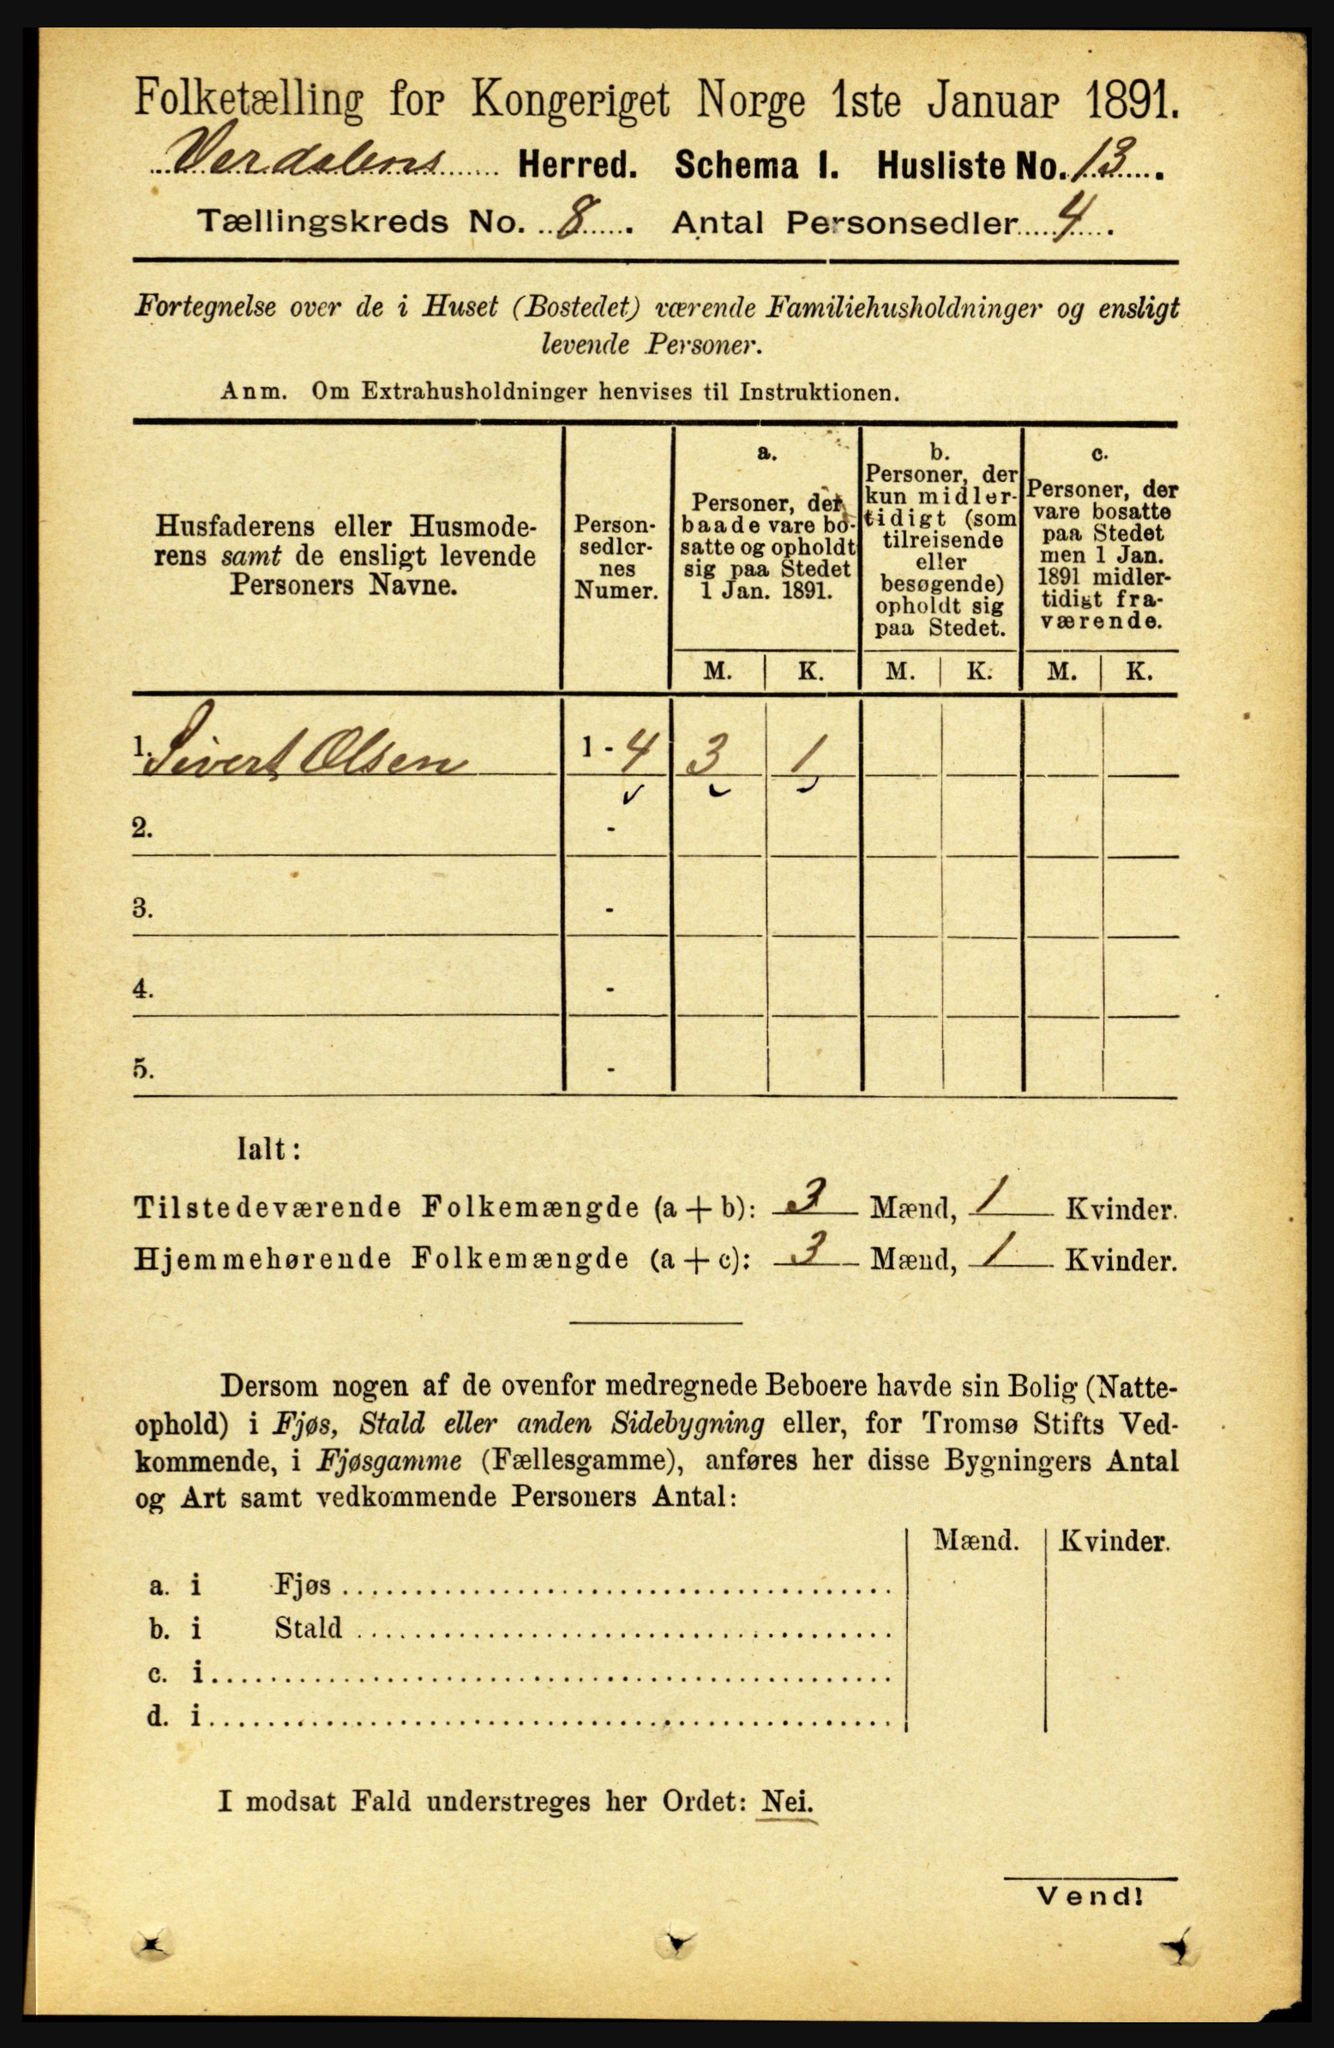 Folketælling for Kongeriget Norge 1ste Januar 1891.
Verdalens Herred. Schema I. Husliste No. 13.
Tællingskreds No. 8. Antal Personsedler 4.
Fortegnelse over de i Huset (Bostedet) værende Familiehusholdninger og ensligt
levende Personer.
Anm. Om Extrahusholdninger henvises til Instruktionen.
Husfaderens eller Husmode-
rens samt de ensligt levende
Personers Navne.
Person-
sedler-
nes
Numer.
a.
Personer, der
baade vare bo-
satte og opholdt
sig paa Stedet
1 Jan. 1891.
b.
Personer, der
kun midler-
tidigt (som
tilreisende
eller
besøgende)
opholdt sig
paa Stedet.
c.
Personer, der
vare bosatte
paa Stedet
men 1 Jan.
1891 midler-
tidigt fra-
værende.
M. K. M. K. M. K.
1. Sivert Olsen 1 - 4 3 1
2. -
3. -
4. -
5. -
Ialt:
Tilstedeværende Folkemængde (a + b): 3 Mænd, 1 Kvinder.
Hjemmehørende Folkemængde (a + c): 3 Mænd, 1 Kvinder.
Dersom nogen af de ovenfor medregnede Beboere havde sin Bolig (Natte-
ophold) i Fjøs, Stald eller anden Sidebygning eller, for Tromsø Stifts Ved-
kommende, i Fjøsgamme (Fællesgamme), anføres her disse Bygningers Antal
og Art samt vedkommende Personers Antal:
Mænd. Kvinder.
a. i Fjøs
b. i Stald
c. i
d. i
I modsat Fald understreges her Ordet: Nei.
Vend!